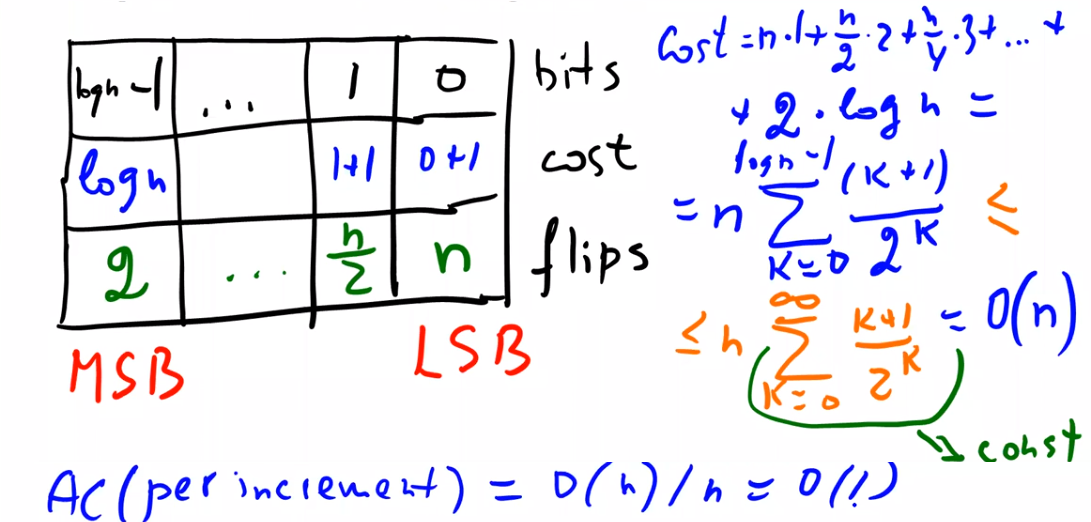 logn-1 ... 1 0 bits
logn 1+1 0+1 cost
2 ... n/2 n flips
MSB LSB
Cost = n·1 + n/2·2 + n/4·3 + ... +
+ 2·log n =
= n ∑_{K=0}^{logn-1} (K+1)/2^K ≤
≤ n ∑_{K=0}^{∞} K+1/2^K = O(n)
const
AC(per increment) = O(n)/n = O(1)